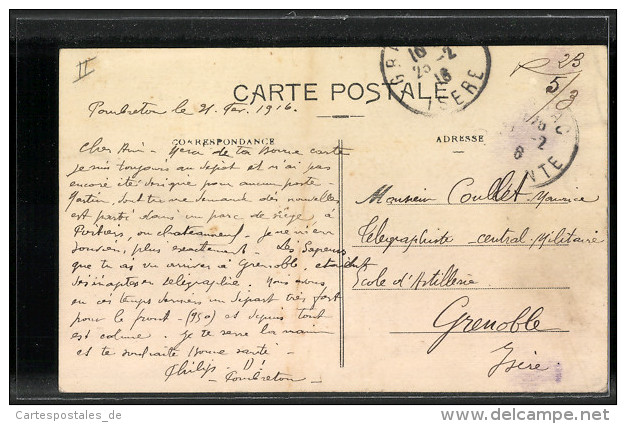 II
23
5/3
CARTE POSTALE
GR
16
25-2
16
ISERE
AC
16
-2
NTE
Pombreton le 21. Fev. 1916.
CORRESPONDANCE
ADRESSE
Cher Ami - Merci de ta Bonne carte
je suis toujours au depot et n'ai pas
encore été désigné pour aucun poste
Martin, dont tu me demande des nouvelles
est parti dans un parc de siège à
Poitiers, ou chateauneuf. Je ne m'en
souviens, plus exactement. Les Sapeurs
que tu as vu arriver à Grenoble
en télégraphie. Nous avons
eu ces temps derniers un depart très fort
pour le front - (950) et depuis tout
est calme. Je te serre la main
et te souhaite bonne santé -
Philip. D'
- Pombreton -
Monsieur Coullet Maurice
Télégraphiste central Militaire
Ecole d'Artillerie
Grenoble
Isère
Cartespostales_de
www.delcampe.net